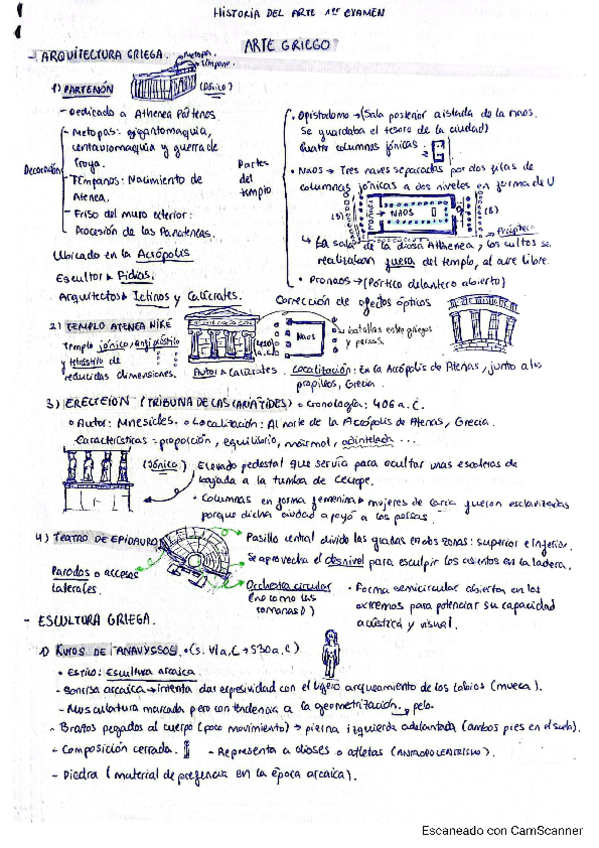 HISTORIA DEL ARTE 1er EXAMEN
ARTE GRIEGO
- ARQUITECTURA GRIEGA.
Metopas
Tímpano
1) PARTENÓN
(Dórico)
- Dedicado a Athenea Pártenos
Decoración
- Metopas: gigantomaquia,
centauromaquia y guerra de
Troya.
- Tímpanos: Nacimiento de
Atenea.
- Friso del muro exterior:
Procesión de las Panateneas.
Ubicado en la Acrópolis
Escultor▸ Fidias.
Arquitectos▸ Ictinos y Calícrates.
Partes
del
templo
• Opistodomo → (Sala posterior aislada de la naos.
Se guardaba el tesoro de la ciudad)
Cuatro columnas jónicas
• Naos → Tres naves separadas por dos filas de
columnas jónicas a dos niveles en forma de U
(5)
NAOS
(8)
Períptero
↳ La sala de la diosa Athenea, los cultos se
realizaban fuera del templo, al aire libre.
• Pronaos → (Pórtico delantero abierto)
Corrección de efectos ópticos
2) TEMPLO ATENEA NIKÉ
Templo jónico, anfipróstilo
y tetrástilo de
reducidas dimensiones.
NAOS
↳ batallas entre griegos
y persas.
Autor▸ Calícrates. Localización: En la Acrópolis de Atenas, junto a los
propíleos, Grecia.
3) ERECTEION (TRIBUNA DE LAS CARIÁTIDES) • Cronología: 406 a.C.
• Autor: Mnesicles. • Localización: Al norte de la Acrópolis de Atenas, Grecia.
Características = proporción, equilibrio, mármol, adintelada ...
(Jónico)
Elevado pedestal que servía para ocultar unas escaleras de
bajada a la tumba de Cecrope.
• Columnas en forma femenina▸ mujeres de Caria fueron esclavizadas
porque dicha ciudad apoyó a los persas.
4) TEATRO DE EPIDAURO
Parodos o accesos
laterales.
Pasillo central divide las gradas en dos zonas: superior e inferior.
Se aprovecha el desnivel para esculpir los asientos en la ladera.
Orchestra circular
(no como las
romanas D)
• Forma semicircular abierta en los
extremos para potenciar su capacidad
acústica y visual.
- ESCULTURA GRIEGA.
1) KUROS DE ANAVYSSOS • (s. VI a.C → 530 a.C)
• Estilo: Escultura arcaica
- Sonrisa arcaica → intenta dar expresividad con el ligero arqueamiento de los labios (mueca).
- Musculatura marcada pero con tendencia a la geometrización. → pelo.
- Brazos pegados al cuerpo (poco movimiento) → pierna izquierda adelantada (ambos pies en el suelo).
- Composición cerrada.
- Representa a dioses o atletas (ANTROPOCENTRISMO).
- Piedra (material de preferencia en la época arcaica).
Escaneado con CamScanner